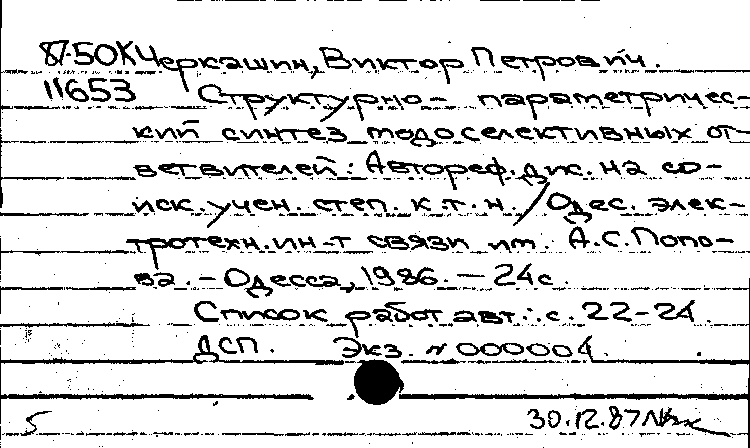 87-50К Черкашин, Виктор Петрович.
11653 Структурно-параметричес-
кий синтез модоселективных от-
ветвителей: Автореф. дис. на со-
иск. учен. степ. к.т.н. / Одес. элек-
тротехн. ин-т связи им. А.С. Попо-
ва. - Одесса, 1986. - 24с.
Список работ авт.: с. 22-24.
ДСП. Экз. № 000004.
5 30.12.87